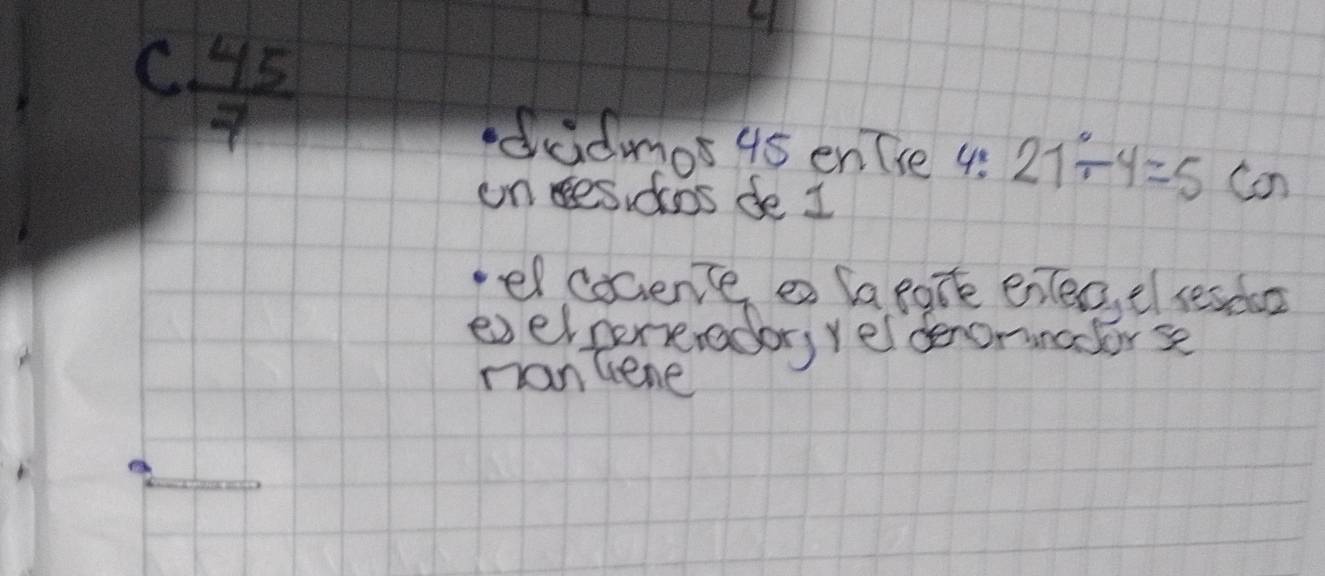 4
C. 45/7
• dividimos 45 entre 4: 21 ÷ 4 = 5 con
un residuos de 1
• el cociente es la parte entera, el residuo
es el numerador, y el denominador se
mantiene